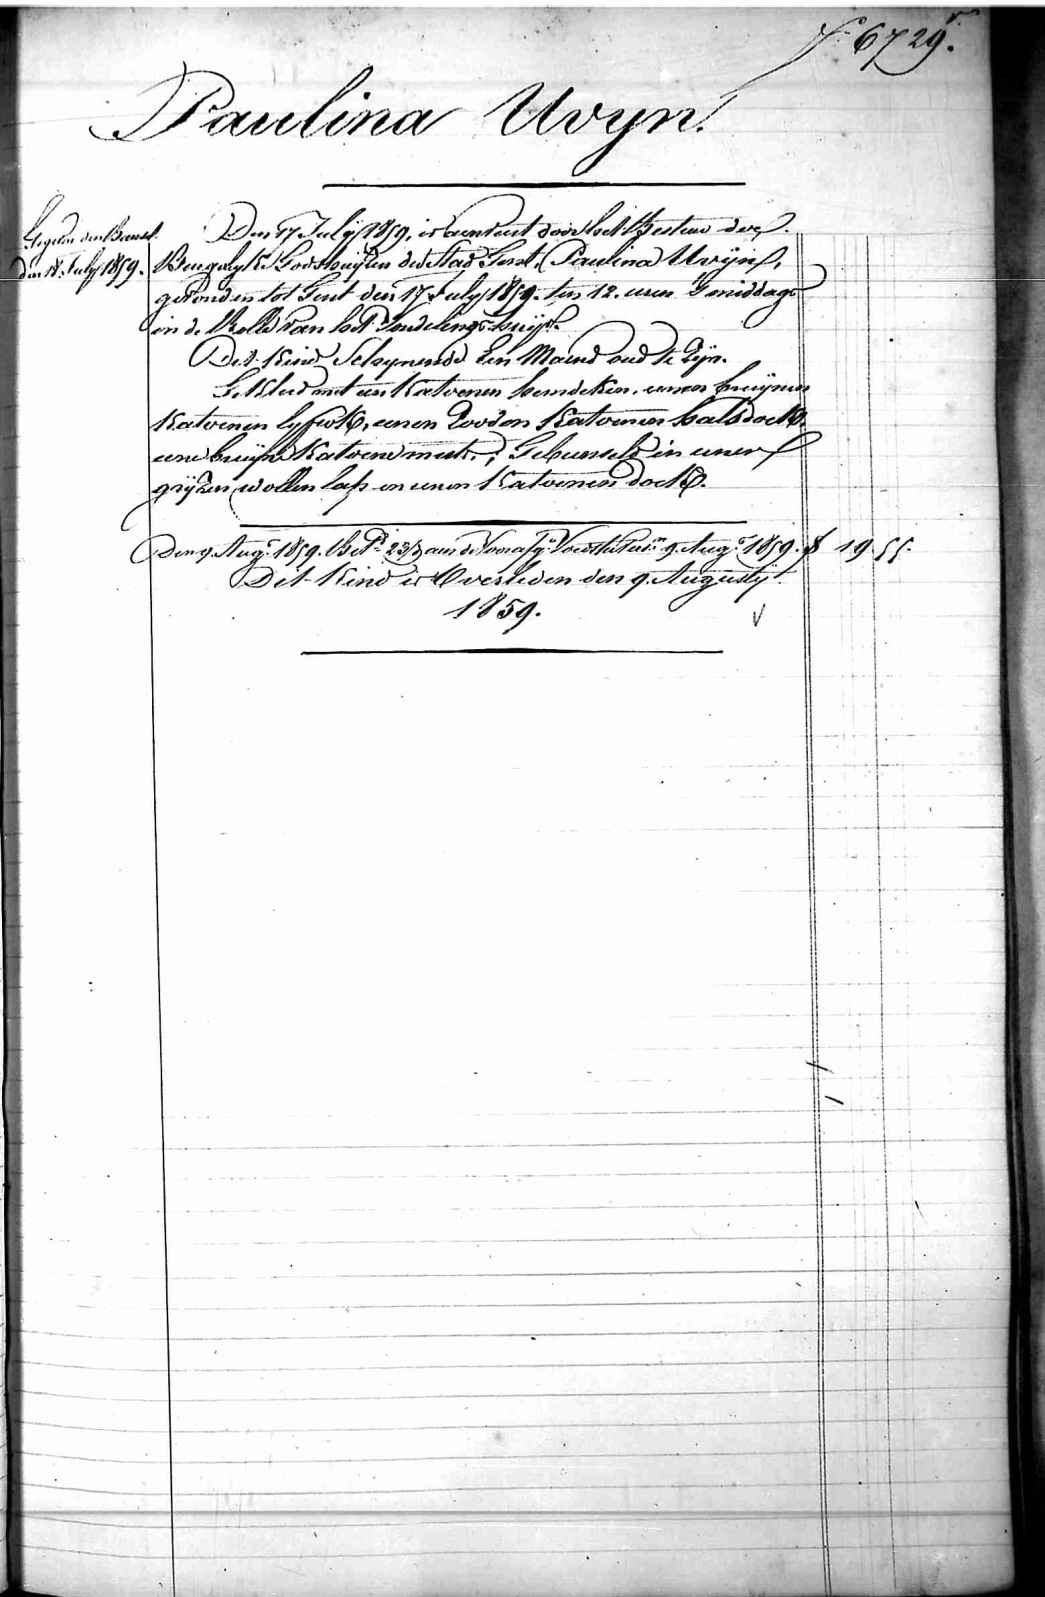 f° 6729.
Paulina Uvyn.
den 18. July 1859.
Den 17 July 1859, is aenveirt door het Bestuer der
Burgerlyke Godshuyzen der Stad Gent, Paulina Uvyn,
gevonden tot Gent den 17 July 1859. ten 12. uren 's middags
in de Rolle van het Vondelings-huys.
Dit Kind Schynende Een Maend oud te Zyn.
Gekleed met een Katoenen hemdeken, eenen bruynen
Katoenen lyfrok, eenen Rooden Katoenen halsdoek,
eene bruyne Katoene muts, ; Gebusseld in eenen
gryzen wollen lap en eenen Katoenen doek.
Den 9. Aug. 1859. Bet. 23 aen de 9. Aug. 1859. f 19.55.
Dit Kind is Overleden den 9. Augusty
1859.